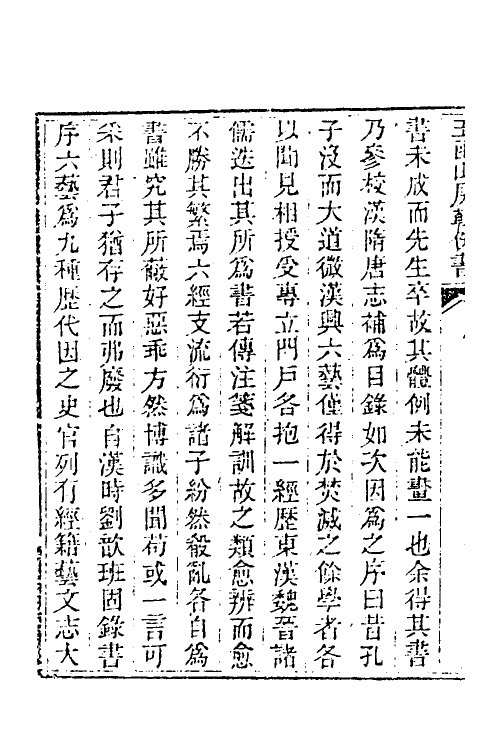 玉函山房輯佚書
書未成而先生卒故其體例未能畫一也余得其書
乃參校漢隋唐志補爲目錄如次因爲之序曰昔孔
子沒而大道微漢興六藝僅得於焚滅之餘學者各
以聞見相授受專立門戶各抱一經歷東漢魏晉諸
儒迭出其所爲書若傳注箋解訓故之類愈辨而愈
不勝其繁焉六經支流衍爲諸子紛然殽亂各自爲
書雖究其所蔽好惡乖方然博識多聞苟或一言可
采則君子猶存之而弗廢也自漢時劉歆班固錄書
序六藝爲九種歷代因之史官列有經籍藝文志大